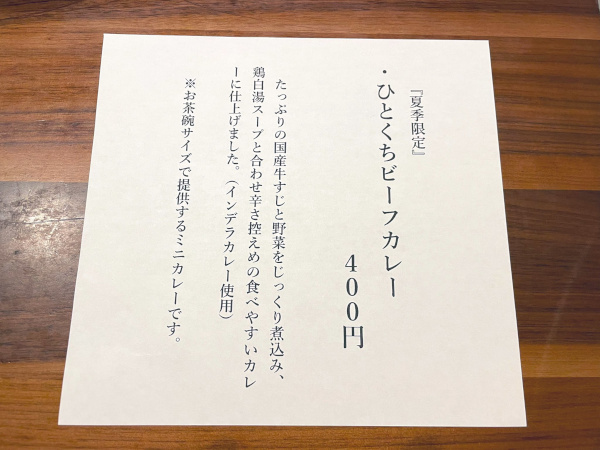 『夏季限定』
・ひとくちビーフカレー
400円
たっぷりの国産牛すじと野菜をじっくり煮込み、
鶏白湯スープと合わせ辛さ控えめの食べやすいカレ
ーに仕上げました。（インデラカレー使用）
※お茶碗サイズで提供するミニカレーです。